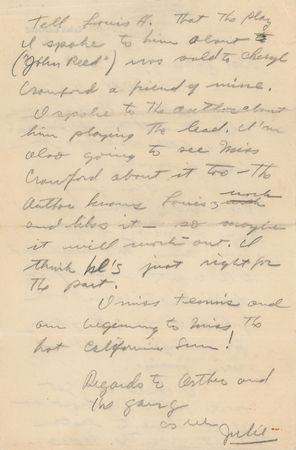 Tell Louis H. that the play
I spoke to him about
("John Reed") was sold to Cheryl
Crawford a friend of mine.
I spoke to the author about
him playing the lead. I'm
also going to see Miss
Crawford about it too - the
author knows Louis's work
and likes it - so maybe
it will work out. I
think he's just right for
the part.
I miss tennis and
am beginning to miss the
hot California sun!
Regards to Arthur and
the gang
as ever
Julie